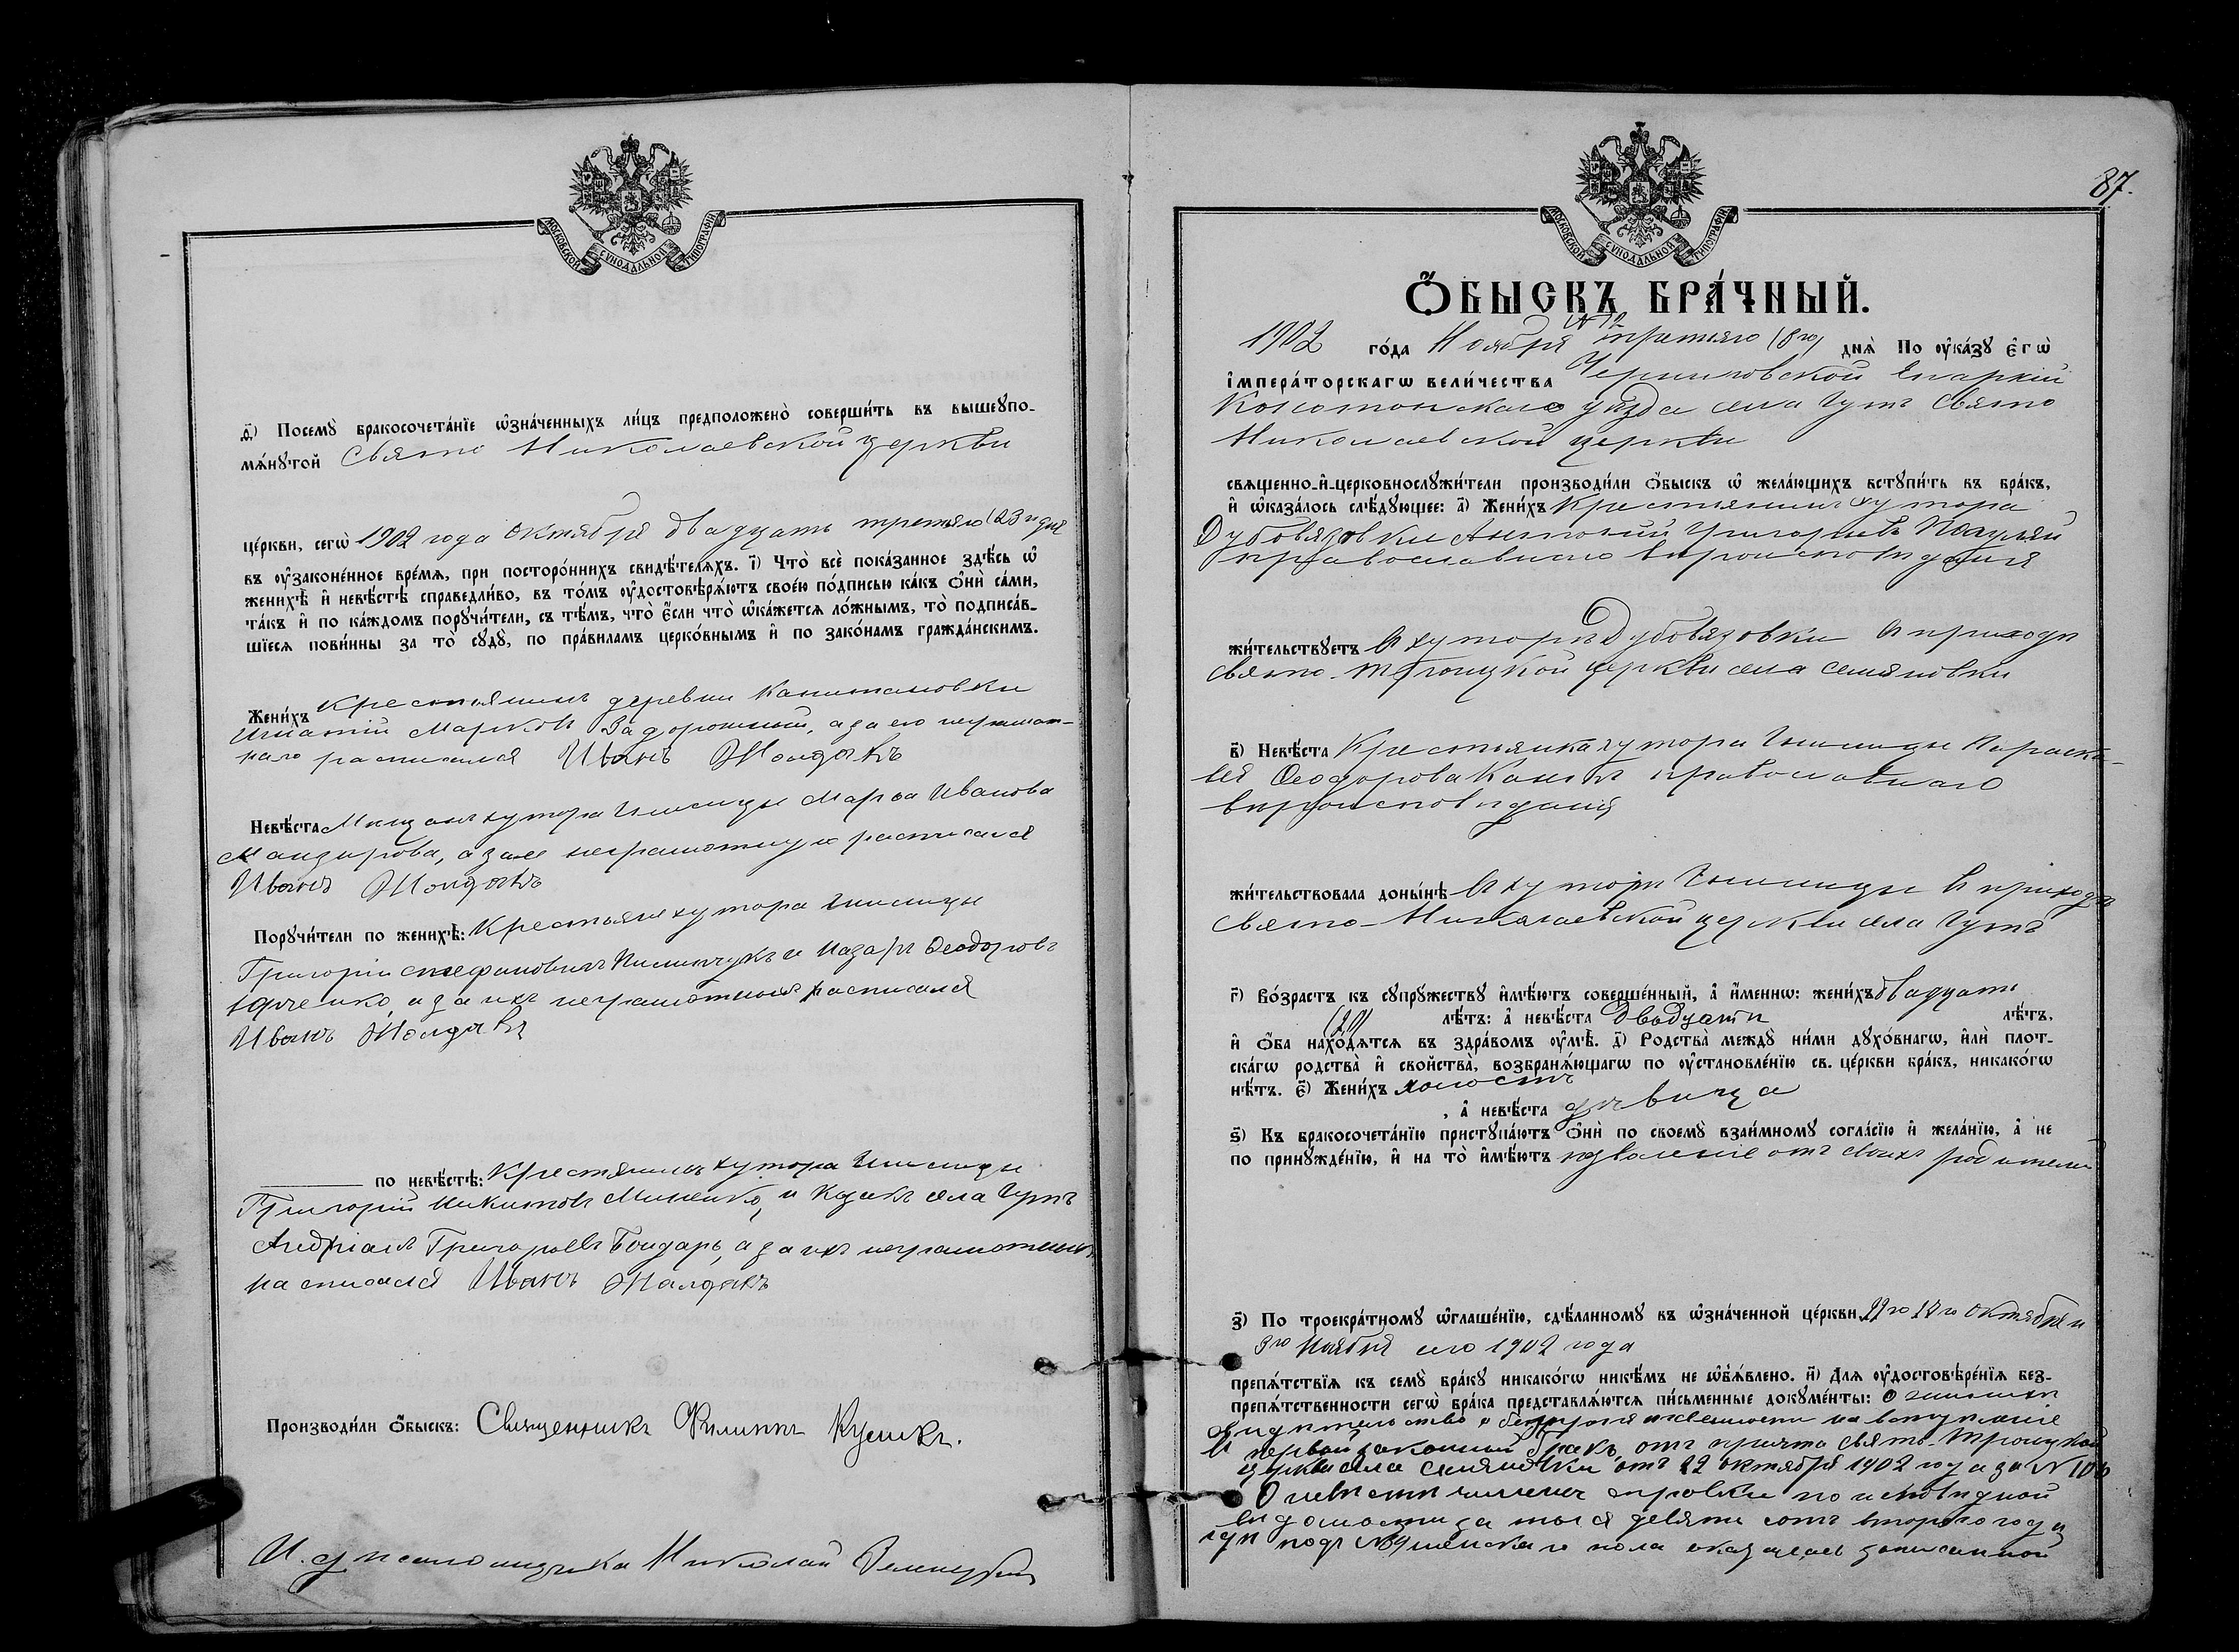 МОСКОВСКОЙ СѴНОДАЛЬНОЙ ТИПОГРАФІИ
ѳ҃) Посемꙋ̀ бракосочета́нїе ѡ҆зна́ченныхъ ли́цъ предположено̀ соверши́ть въ вышеꙋпо-
мѧ́нꙋтой Свято Николаевской церкви
це́ркви, сегѡ̀ 1902 года Октября двадцать третьяго (23 го дня
въ ᲂу҆законе́нное вре́мѧ, при посторо́ннихъ свидѣ́телѧхъ. і҃) Что̀ всѐ пока́занное здѣ́сь ѡ҆
женихѣ̀ и҆ невѣ́стѣ справедли́во, въ то́мъ ᲂу҆достовѣрѧ́ютъ свое́ю по́дписью ка́къ ѻ҆нѝ са́ми,
та́къ и҆ по ка́ждомъ порꙋчи́тели, съ тѣ́мъ, что̀ є҆́сли что̀ ѡ҆ка́жетсѧ ло́жнымъ, то̀ подписа́в-
шїесѧ пови́нны за то̀ сꙋдꙋ̀, по пра́виламъ церко́внымъ и҆ по зако́намъ гражда́нскимъ.
Жени́хъ Крестьянинъ деревни Капитановки
Игнатій Марковъ Задорожный, а за его неграмот-
наго росписался Иванъ
Невѣ́ста Мещан. хутора Марфа Иванова
а за нее неграмотную росписался
Иванъ
Порꙋчи́тели по женихѣ̀: Крестьяне хутора
Григорій Стефановичъ и Назаръ Ѳеодоровъ
Юрченко, а за ихъ неграмотныхъ росписался
Иванъ
по невѣ́стѣ: Крестянинъ хутора
Григорій Никитовъ Миненко, и Казакъ села Гутъ
Андріанъ Григорьевъ Бондарь, а за ихъ неграмотныхъ
росписался Иванъ
Производи́ли ѻ҆́быскъ: Священникъ Филиппъ Кусикъ.
И. д. псаломщика Николай
87.
МОСКОВСКОЙ СѴНОДАЛЬНОЙ ТИПОГРАФІИ
Ѻ҆́БЫСКЪ БРА́ЧНЫЙ.
1902 го́да Ноября третьяго (3 го) днѧ̀ По ᲂу҆ка́зꙋ є҆гѡ̀
і҆мпера́торскагѡ вели́чества Черниговской Епархіи
Конотопскаго уѣзда села Гутъ Свято
Николаевской церкви
свѧщенно-и҆-церковнослꙋжи́тели производи́ли ѻ҆́быскъ ѡ҆ жела́ющихъ встꙋпи́ть въ бра́къ,
и҆ ѡ҆каза́лось слѣ́дꙋющее: а҃) Жени́хъ Крестьянинъ хутора
Дубовязовки Антоній Григорьевъ
православнаго вѣроисповѣданія
жи́тельствꙋетъ въ хуторѣ Дубовязовки въ приходѣ
Свято-Троицкой церкви села Семяновки
в҃) Невѣ́ста Крестьянка хутора Параске-
вія Ѳеодорова православнаго
вѣроисповѣданія
жи́тельствовала доны́нѣ въ хуторѣ въ приходѣ
Свято-Николаевской церкви села Гутъ
г҃) Во́зрастъ къ сꙋпрꙋ́жествꙋ и҆мѣ́ютъ соверше́нный, а҆ и҆́меннѡ: жени́хъ двадцать
(20) лѣ́тъ: а҆ невѣ́ста двадцати лѣ́тъ,
и҆ ѻ҆́ба нахо́дѧтсѧ въ здра́вомъ ᲂу҆мѣ̀. д҃) Родства̀ междꙋ̀ ни́ми дꙋхо́внагѡ, и҆лѝ плот-
ска́гѡ родства̀ и҆ сво́йства̀, возбранѧ́ющагѡ по ᲂу҆становле́нїю св. це́ркви бра́къ, никако́гѡ
нѣ́тъ. є҃) Жени́хъ холостъ
, а҆ невѣ́ста дѣвица
ѕ҃) Къ бракосочета́нїю пристꙋпа́ютъ ѻ҆нѝ по своемꙋ̀ взаи́мномꙋ согла́сїю и҆ жела́нїю, а҆ не
по принꙋжде́нїю, и҆ на то̀ и҆мѣ́ютъ позволеніе отъ своихъ родителей
з҃) По троекра́тномꙋ ѡ҆глаше́нїю, сдѣ́ланномꙋ въ ѡ҆зна́ченной це́ркви Октября и
3го Ноября сего 1902 года
препѧ́тствїѧ къ семꙋ̀ бра́кꙋ никако́гѡ никѣ́мъ не ѡ҆б̾ѧ́влено. и҃) Длѧ ᲂу҆достовѣре́нїѧ без-
препѧ́тственности сегѡ̀ бра́ка представлѧ́ютсѧ пи́сьменные докꙋме́нты: О женихѣ
свидѣтельство о на вступленіе
въ первый законный бракъ отъ причта Свято-Троицкой
церкви села Семяновки отъ 22 октября 1902 года за №
О невѣстѣ справки по исповѣдной
вѣдомости за тыся девять сотъ второго года
гдѣ подъ № женскаго пола оказалась записанной